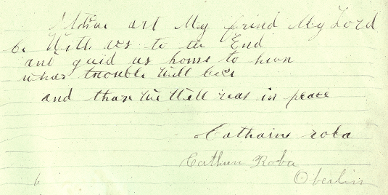 art My friend My Lord
be With us to the End
ant guid us home to
trouble Will
and than We Will in peace
Catharine roba
Catharine Roba
Oberlin
6